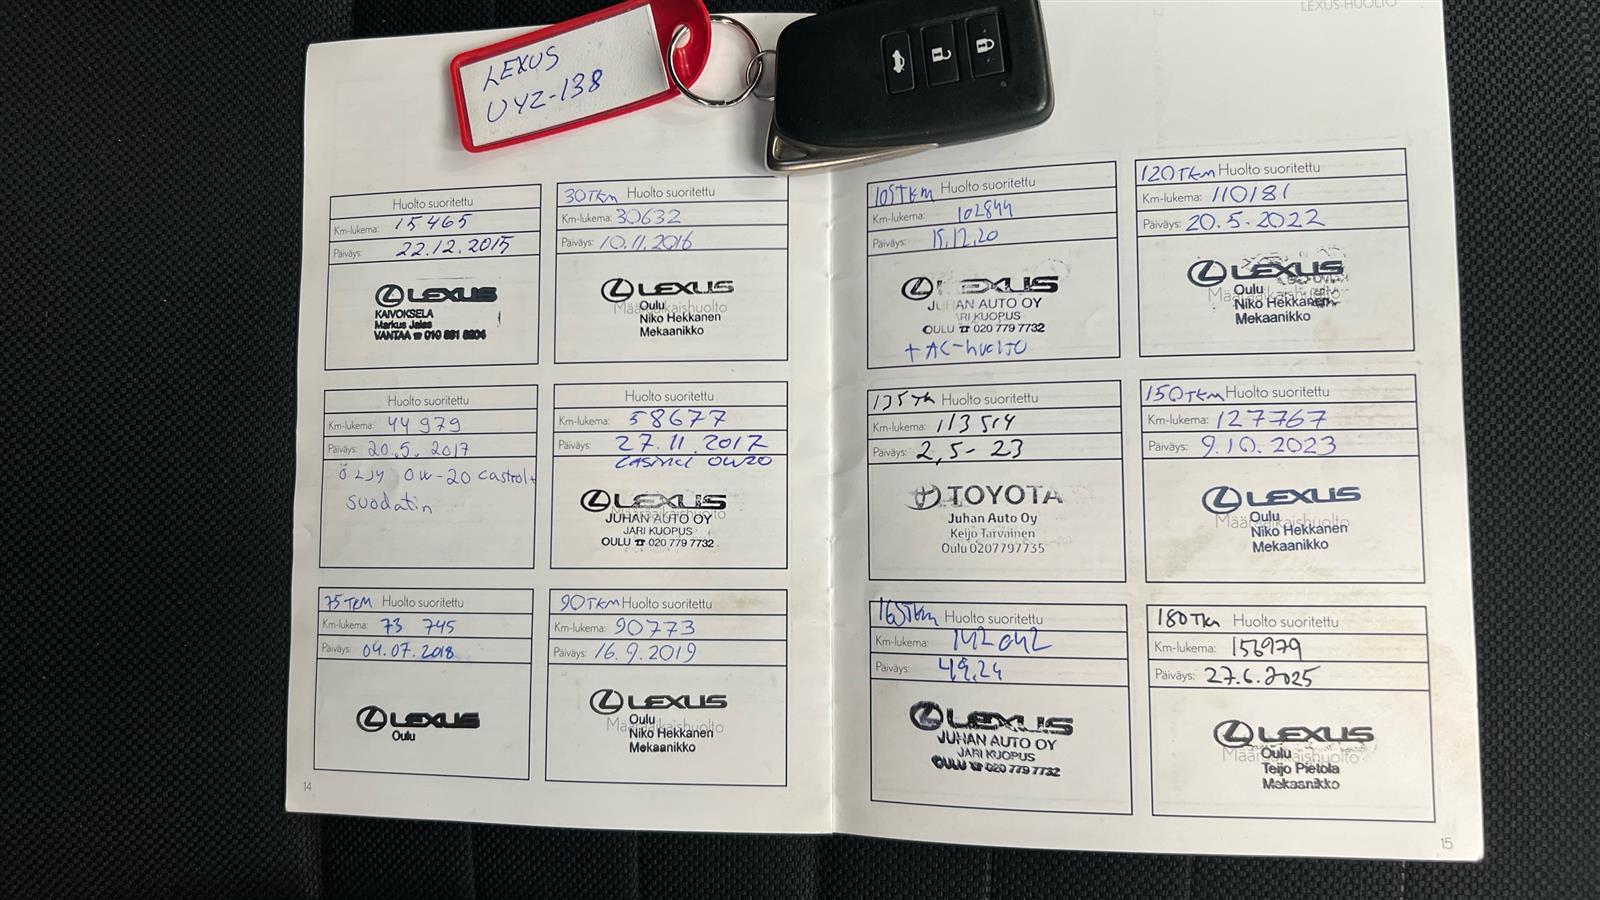 LEXUS-HUOLTO
LEXUS
UYZ-138
Huolto suoritettu
Km-lukema: 15465
Päiväys: 22.12.2015
LEXUS
KAIVOKSELA
Markus Jalas
VANTAA ☎ 010 851 8204
30TKm Huolto suoritettu
Km-lukema: 30632
Päiväys: 10.11.2016
LEXUS
Oulu
Määräaikaishuolto
Niko Hekkanen
Mekaanikko
Huolto suoritettu
Km-lukema: 44979
Päiväys: 20.5.2017
ÖLJY 0W-20 castrol+
suodatin
Huolto suoritettu
Km-lukema: 58677
Päiväys: 27.11.2017
0W20
LEXUS
Määräaikaishuolto
JUHAN AUTO OY
JARI KUOPUS
OULU ☎ 020 779 7732
75TKM Huolto suoritettu
Km-lukema: 73 745
Päiväys: 04.07.2018
LEXUS
Oulu
90TKM Huolto suoritettu
Km-lukema: 90773
Päiväys: 16.9.2019
LEXUS
Oulu
Määräaikaishuolto
Niko Hekkanen
Mekaanikko
14
105TKm Huolto suoritettu
Km-lukema: 102844
Päiväys: 15.12.20
LEXUS
JUHAN AUTO OY
JARI KUOPUS
OULU ☎ 020 779 7732
+ AC-huolto
120TKm Huolto suoritettu
Km-lukema: 110181
Päiväys: 20.5.2022
LEXUS
Oulu
Määräaikaishuolto
Niko Hekkanen
Mekaanikko
135TKm Huolto suoritettu
Km-lukema: 113514
Päiväys: 2,5-23
TOYOTA
Juhan Auto Oy
Keijo Tarvainen
Oulu 0207797735
150TKm Huolto suoritettu
Km-lukema: 127767
Päiväys: 9.10.2023
LEXUS
Oulu
Määräaikaishuolto
Niko Hekkanen
Mekaanikko
165TKm Huolto suoritettu
Km-lukema: 142042
Päiväys: 4.9.24
LEXUS
JUHAN AUTO OY
JARI KUOPUS
OULU ☎ 020 779 7732
180TKm Huolto suoritettu
Km-lukema: 156979
Päiväys: 27.6.2025
LEXUS
Oulu
Määräaikaishuolto
Teijo Pietola
Mekaanikko
15